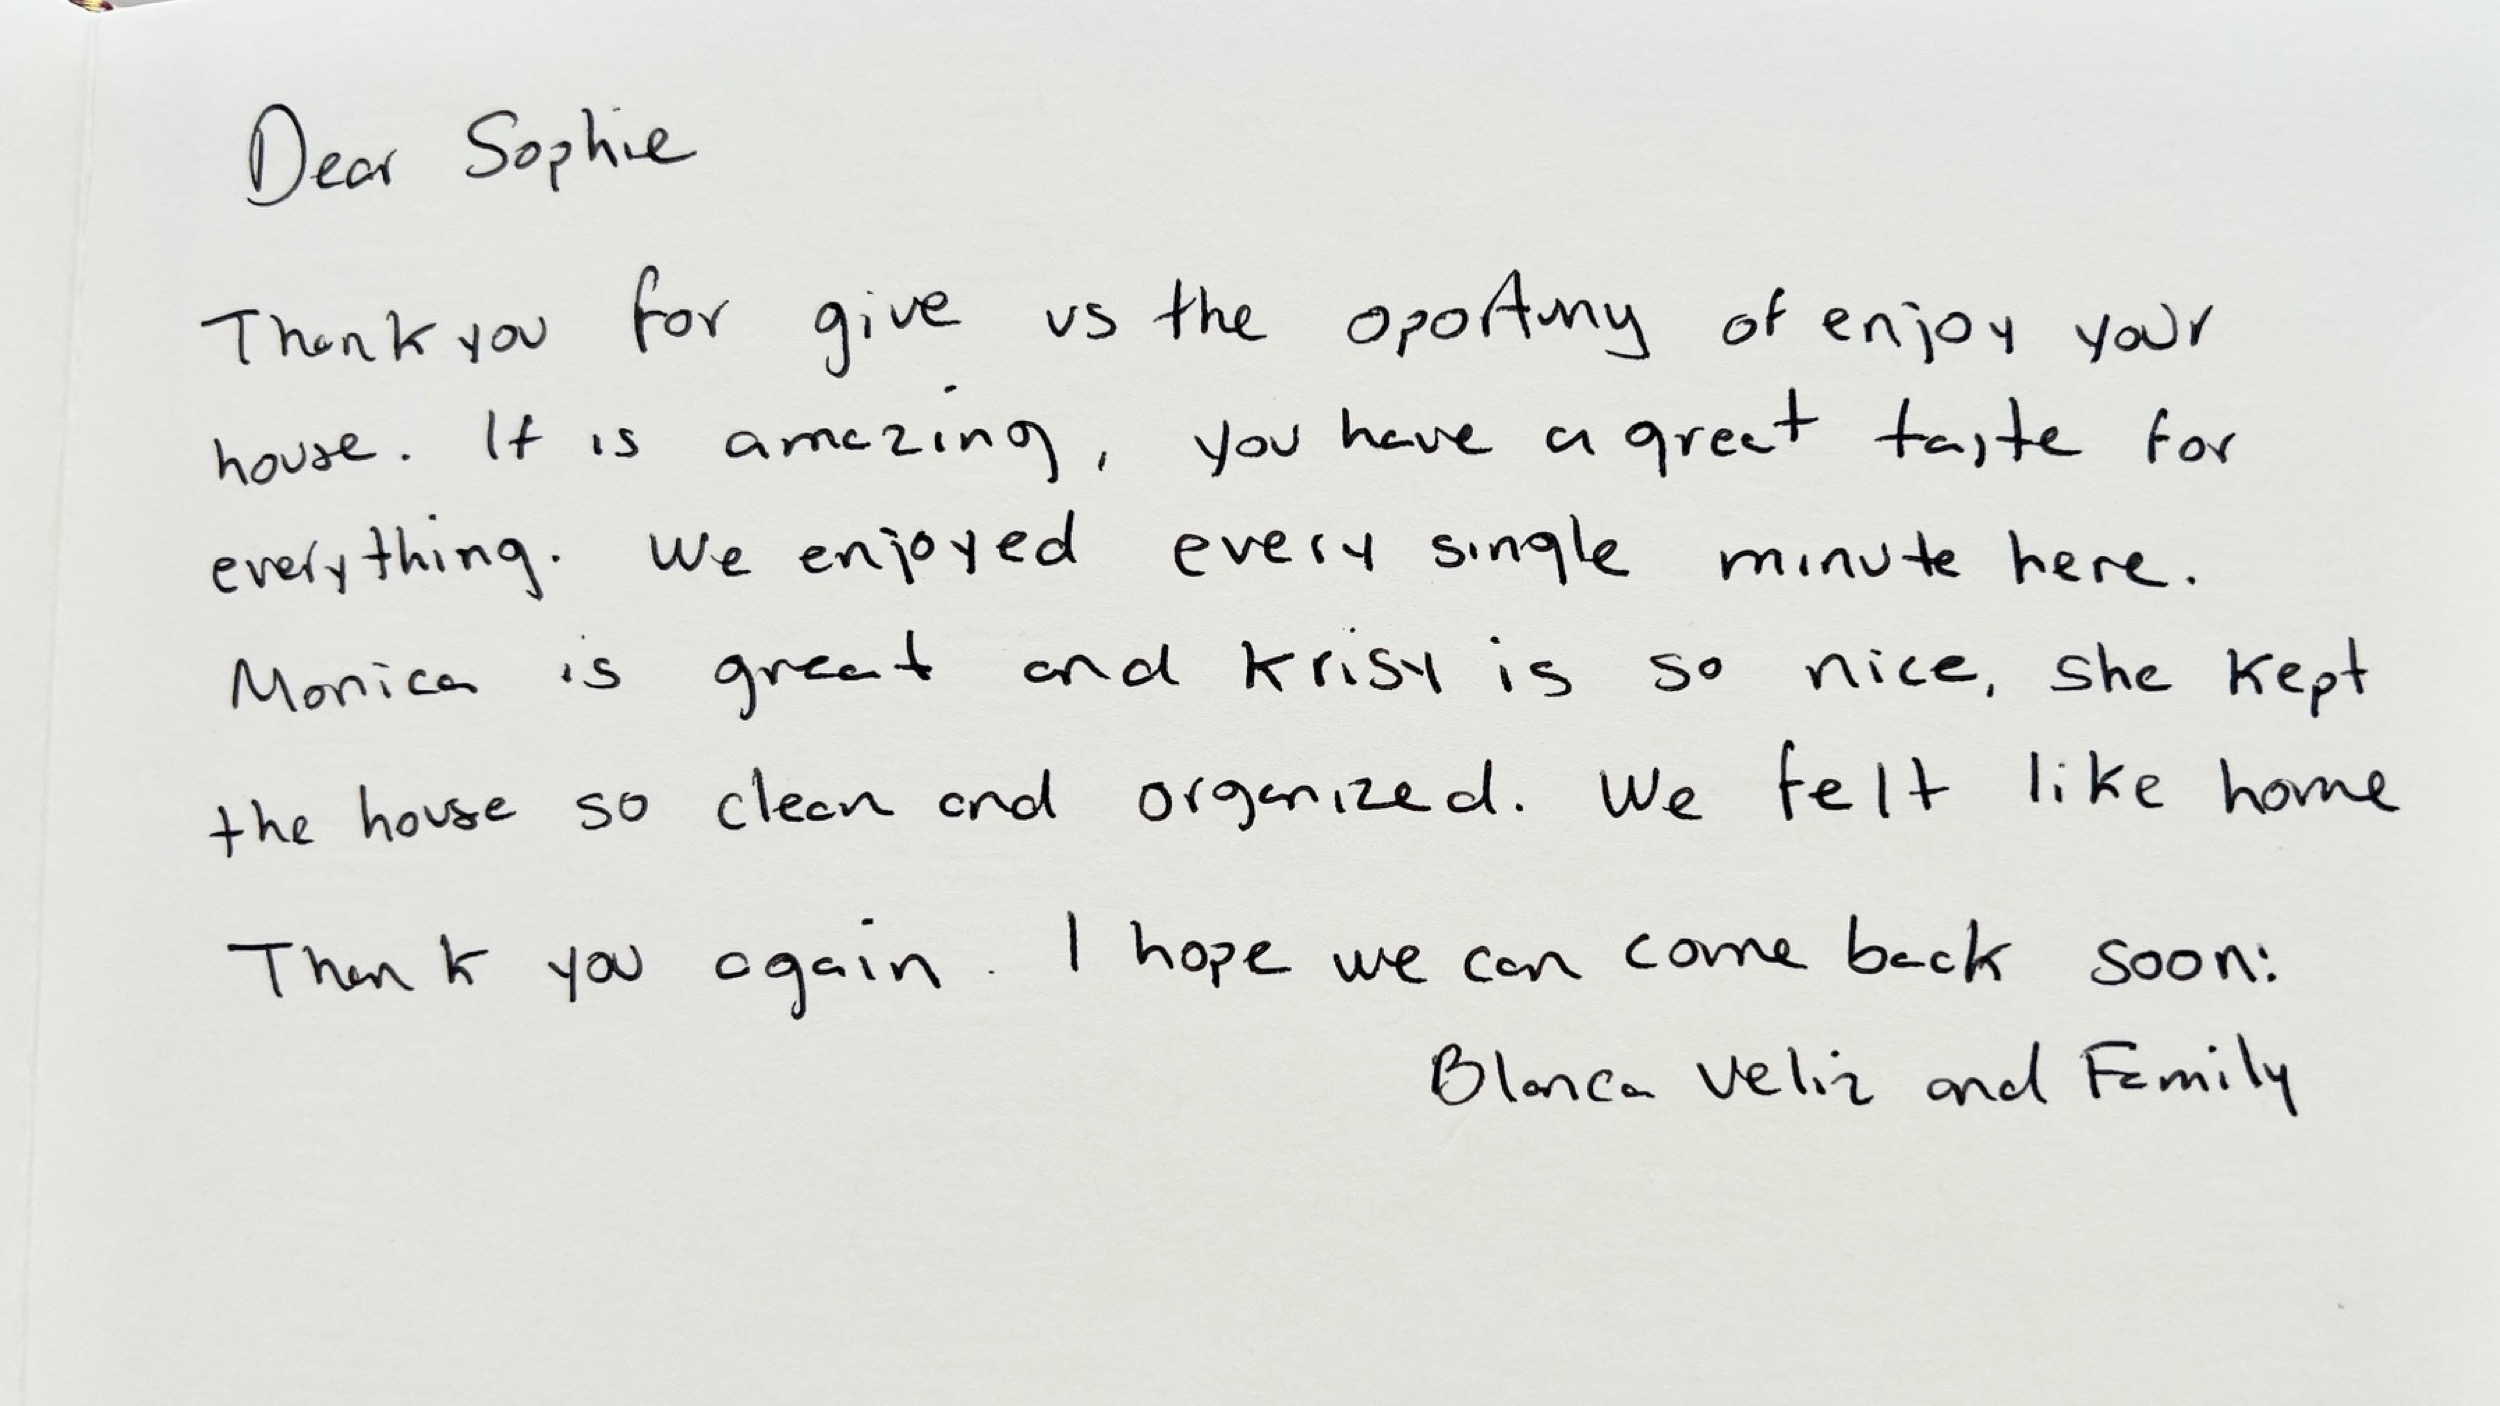 Dear Sophie
Thank you for give us the of enjoy your
house. It is amazing, you have a great taste for
everything. We enjoyed every single minute here.
Monica is great and Krisy is so nice, she kept
the house so clean and organized. We felt like home
Thank you again. I hope we can come back soon:
Blanca Veliz and Family